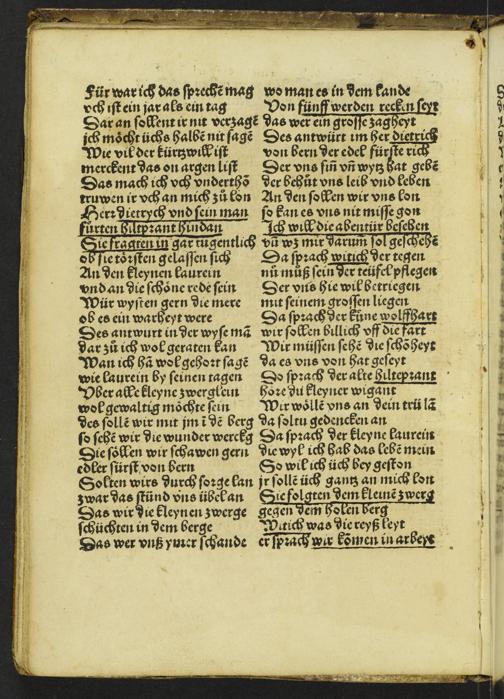 Für war ich das sprechē mag
vch ist ein jar als ein tag
Dar an sollent ir nit verzagē
ich möcht üchs halbē nit sagē
Wie vil der kürtzwill ist
merckent das on argen list
Das mach ich vch vnderthō
truwen ir vch an mich zů lon
Herr dietrych vnd sein man
fürten hiltprant hindan
Sie fragten in gar tugentlich
ob sie törsten gelassen sich
An den kleynen laurein
vnd an die schöne rede sein
Wür wysten gern die mere
ob es ein warheyt were
Des antwurt in der wyse mā
dar zů ich wol geraten kan
Wan ich hā wol gehort sagē
wie laurein by seinen tagen
Vber alle kleyne zwerglein
wol gewaltig möchte sein
des sollē wir mit jm ī dē berg
so sehē wir die wunder werckg
Die söllen wir schawen gern
edler fürst von bern
Solten wirs durch sorge lan
zwar das stünd vns übel an
Das wir die kleynen zwerge
schüchten in dem berge
Das wer vnß ymer schande
wo man es in dem lande
Von fünff werden recken seyt
das wer ein grosse zagheyt
Des antwürt im her dietrich
von bern der edel fürste rich
Der vns sin vn̄ wytz hat gebē
der behüt vns leib vnd leben
An den sollen wir vns lon
so kan es vns nit misse gon
Ich will die abentür besehen
vn̄ wz mir darum̄ sol geschehē
Da sprach witich der tegen
nü můß sein der teüfel pflegen
Der vns hie wil betriegen
mit seinem grossen liegen
Da sprach der küne wolffhart
wir sollen billich vff die fart
Wir müssen sehē die schōheyt
da es vns von hat geseyt
So sprach der alte hilteprant
höre du kleyner wigant
Wir wöllē vns an dein trü lā
da soltu gedencken an
Da sprach der kleyne laurein
die wyl ich hab das lebē mein
So wil ich üch bey geston
jr sollē üch gantz an mich lon
Sie folgten dem kleinē zwerg
gegen dem holen berg
Witich was die reyß leyt
er sprach wir kōmen in arbeyt